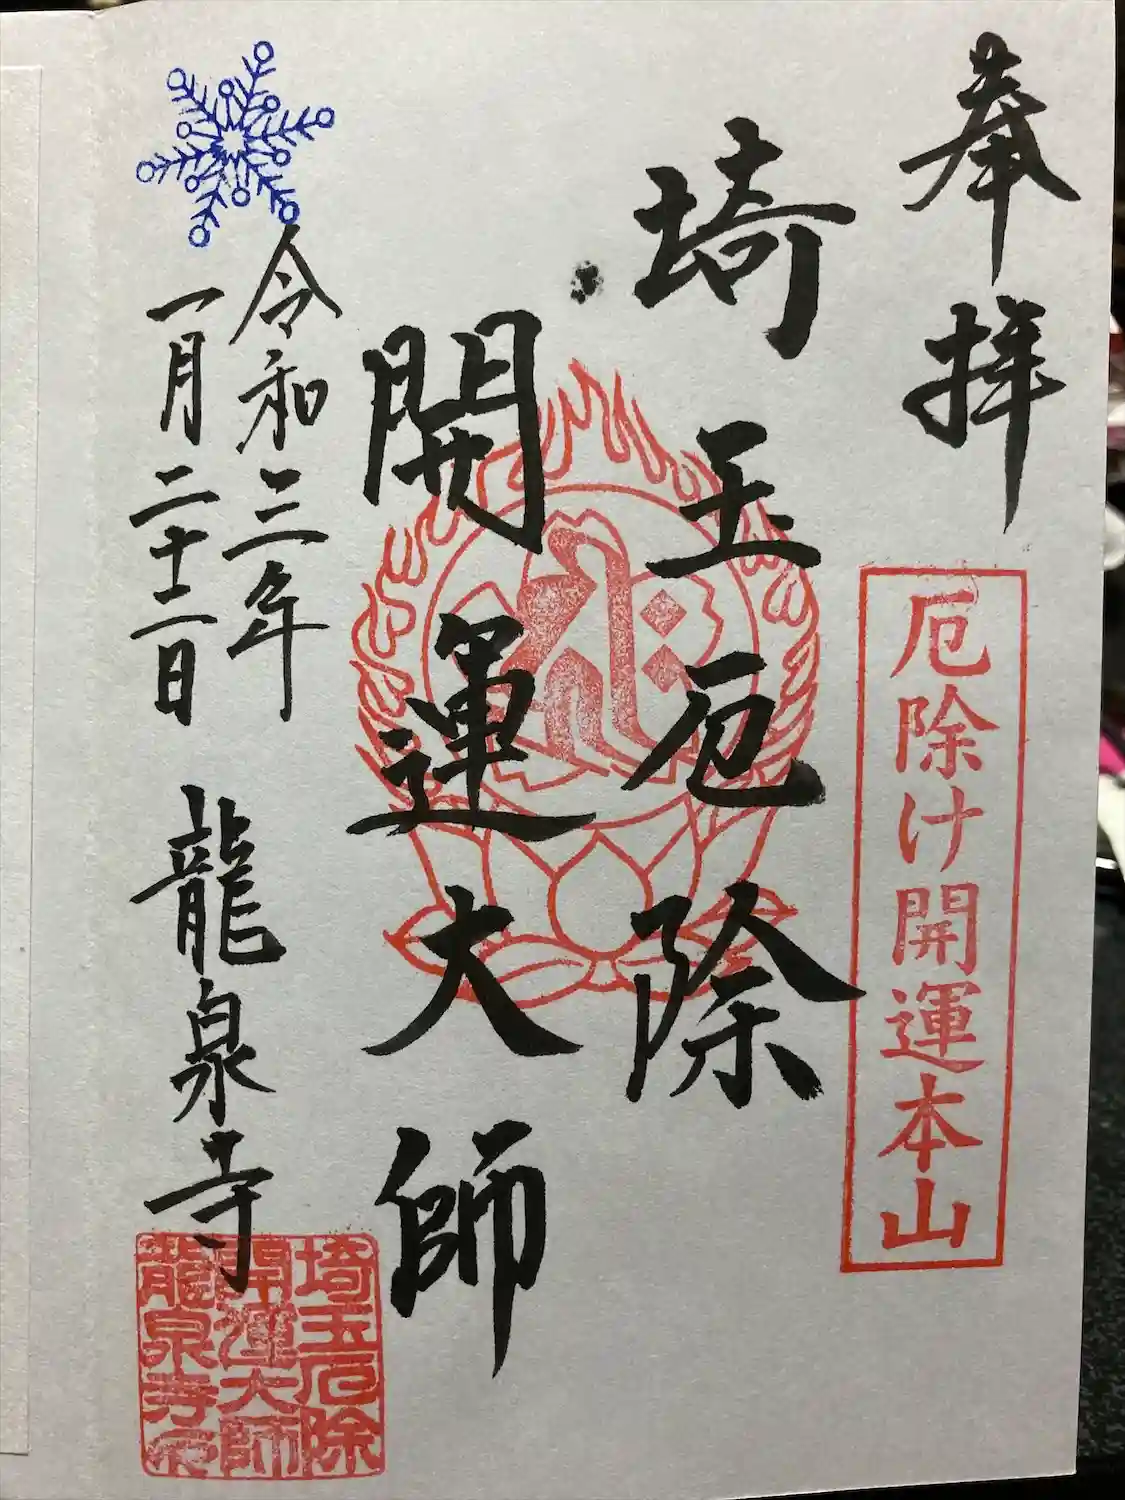 奉拝
厄除け開運本山
埼玉厄除
開運大師
令和三年
一月二十二日
龍泉寺
埼玉厄除
開運大師
龍泉寺